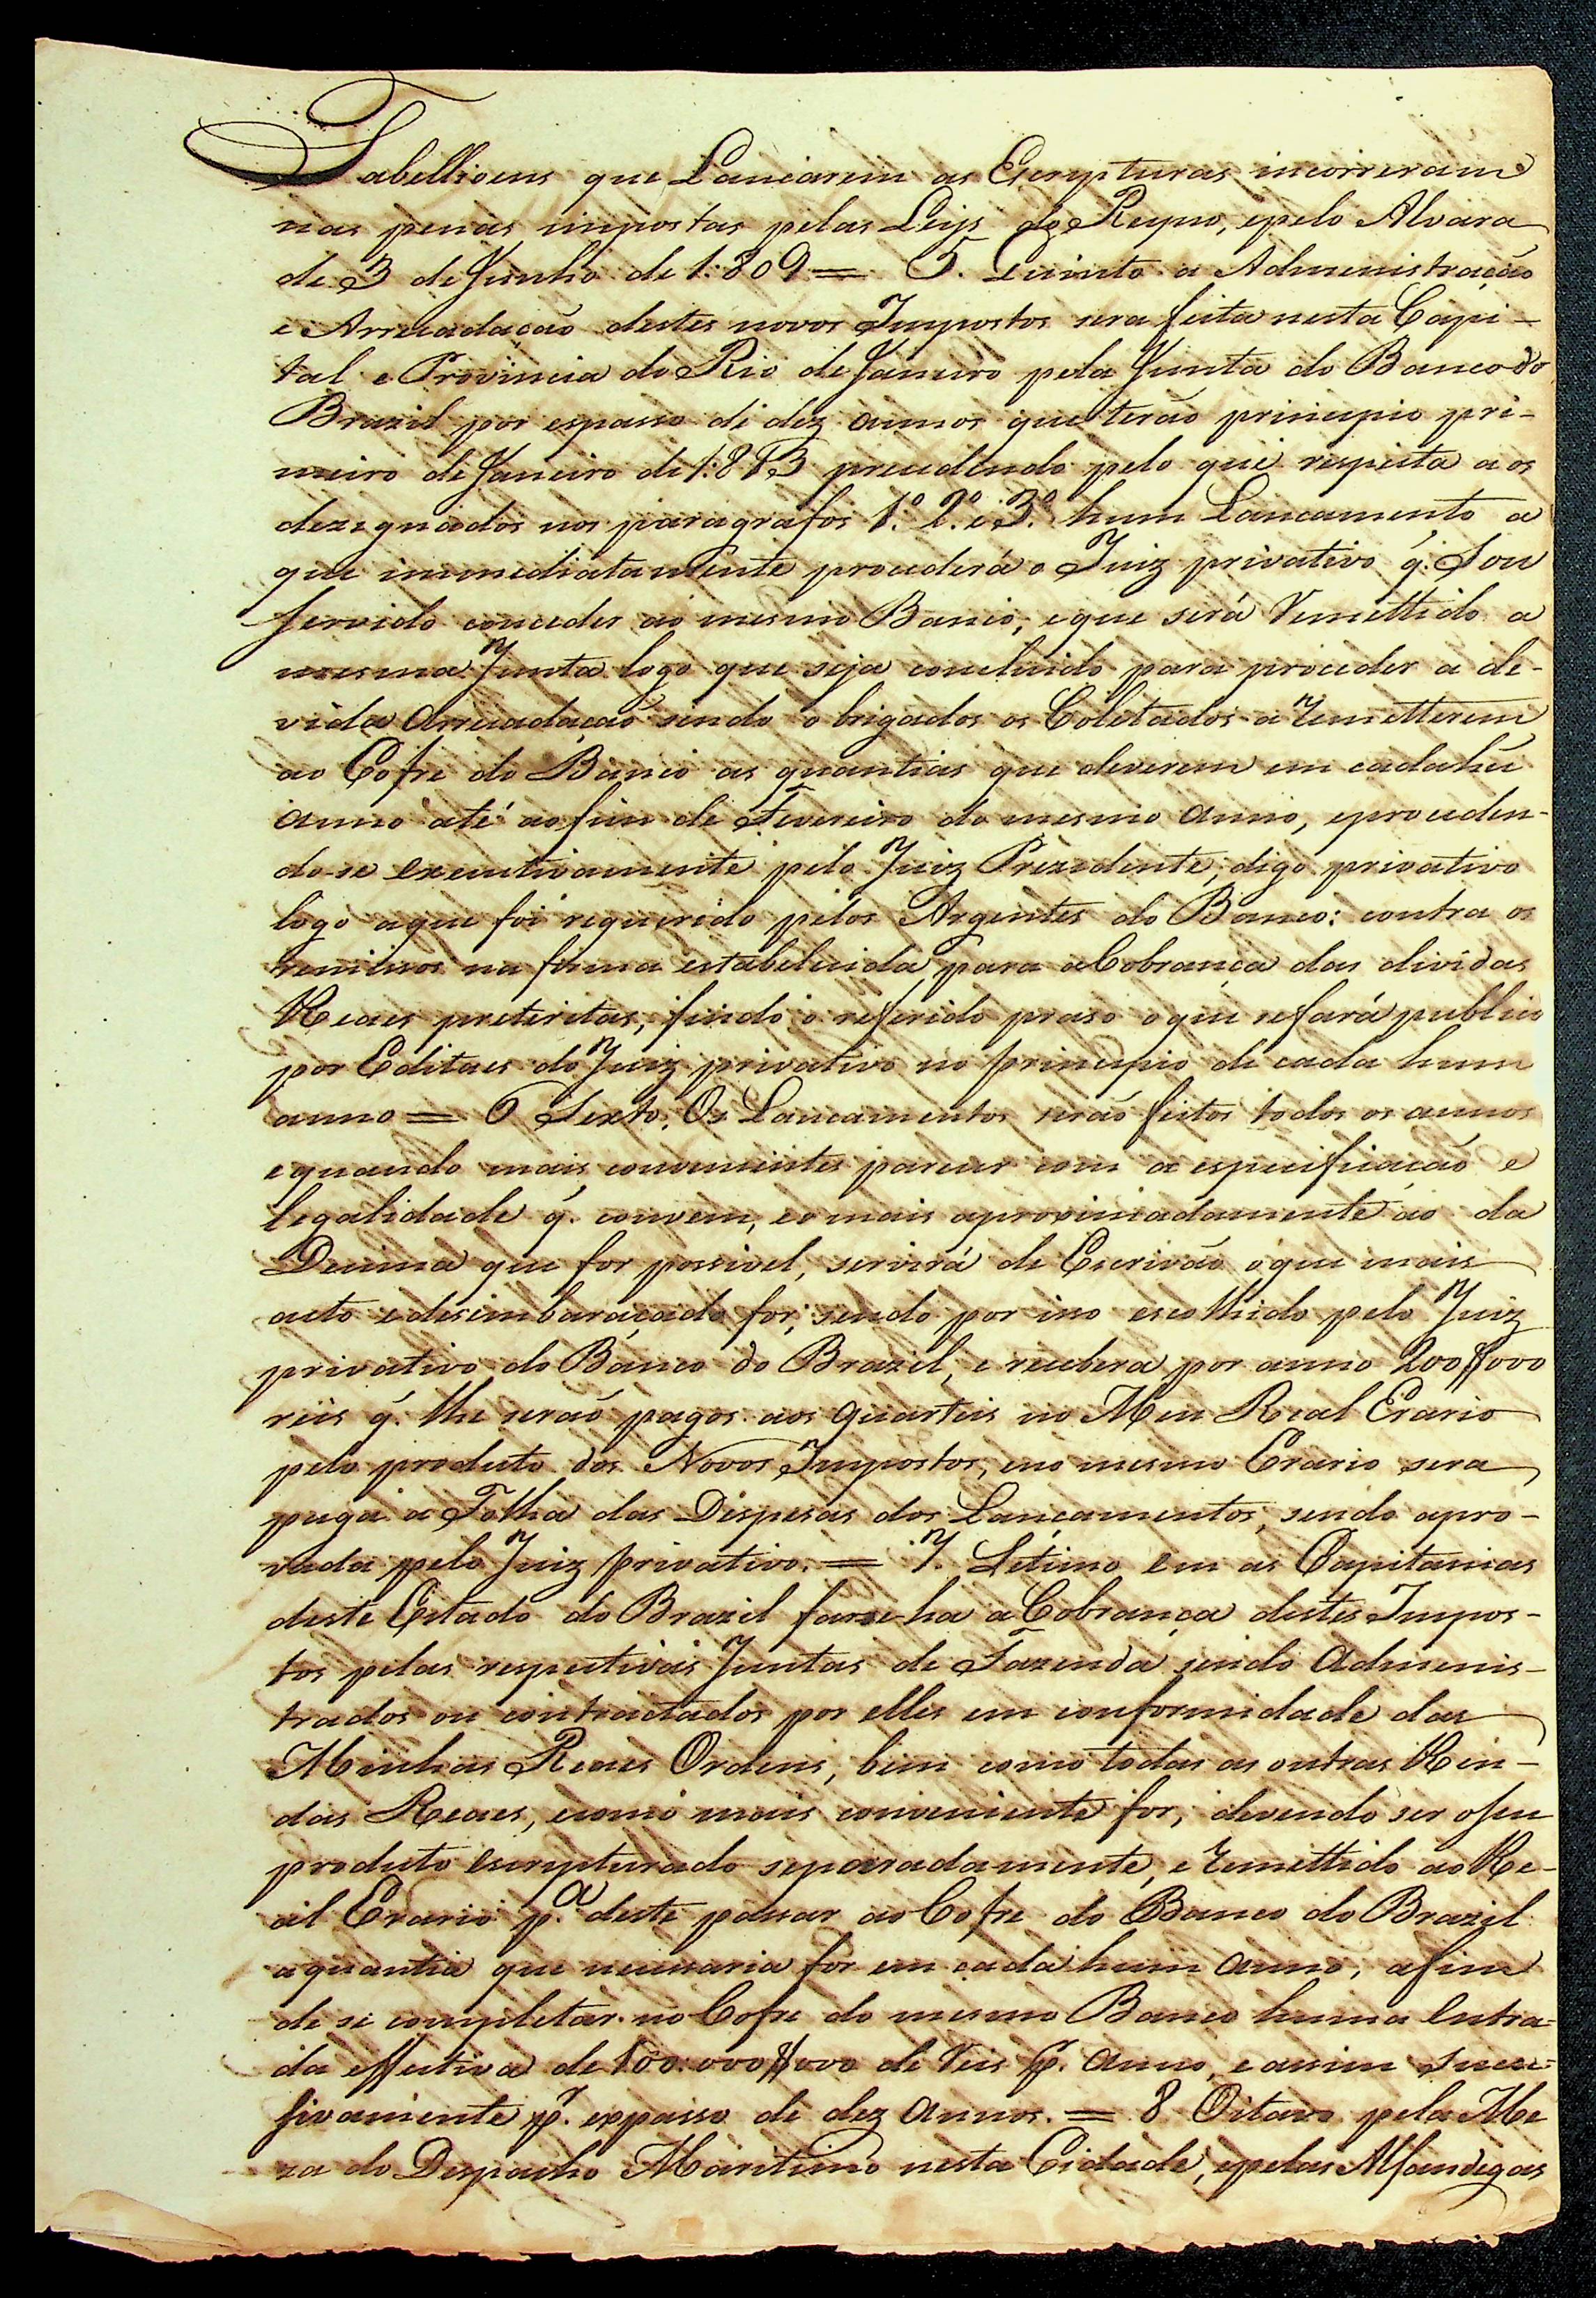 Tabellioens que Lancarem as Escrypturas, incorreram
nas penas impostas pelas Leys do Reyno, epelo Alvara
de 3 de Junho de 1:809 = 5. Quinto a Admenistração
e Arrecadação destes novos Impostos sera feita nesta Capi-
tal e Provincia do Rio de Janeiro pela Junta do Banco do
Brazil por espasso de dez annos que terão principio pri-
meiro de Janeiro de 1:813 precedendo pelo que respeita aos
dezignados nos paragrafos 1.º 2.º e 3.º hum Lancamento a
que immediatamente procederá o Juiz privativo q. Sou
Servido conceder ao mesmo Banco, eque será Remettido a
mesma Junta logo que seja concluido para proceder a de-
vida Arrecadação sendo obrigados os Coletados a Remetterem
ao Cofre do Banco as quantias que deverem em cada hũ
anno até ao fim de Fevereiro do mesmo anno, eproceden-
do-se executivamente pelo Juiz Prezidente, digo privativo
logo aque foi requerido pelos Argentes do Banco: contra os
remissos na forma estabelecida para a Cobrança das dividas
Reaes preteritas, findo o referido praso oque se fará publico
por Editaes do Juiz privativo no principio de cada hum
anno = 6 Sexto. Os Lancamentos serão feitos todos os annos
equando mais convenientes parecer com a especificação e
legalidade q. convem, eo mais aproximadamente ao da
Decima que for possivel, servirá de Escrivão oque mais
auto edesimbaraçado for; sendo por isso escolhido pelo Juiz
privativo do Banco do Brazil, e recebera por anno 200$000
reis q. lhe serão pagos aos quarteis no Meu Real Erario
pelo producto dos Novos Impostos, eno mesmo Erario sera
paga a Folha das Dispesas dos Lançamentos, sendo apro-
vada pelo Juiz privativo. = 7. Setimo em as Capitanias
deste Estado do Brazil farse-ha a Cobrança destes Impos-
tos pelas respectivas Juntas de Fazenda sendo Admenis-
trados ou contractados por elles em conformidade das
Minhas Reaes Ordens, bem como todas as outras Ren-
das Reaes, ecomo mais conveniente for, devendo ser oseu
producto escrypturado separadamente, e Remettido ao Re-
al Erario p.a deste passar ao Cofre do Banco do Brazil
a quantia que necessaria for em cada hum anno, afim
de se completar no Cofre do mesmo Banco huma Entra-
da effectiva de 100:000$000 de Reis p. anno, e assim Succe-
sivamente p. expasso de dez Annos. = 8 Oitavo pela Me
za do Despacho Maritimo nesta Cidade, epelas Alfandegas